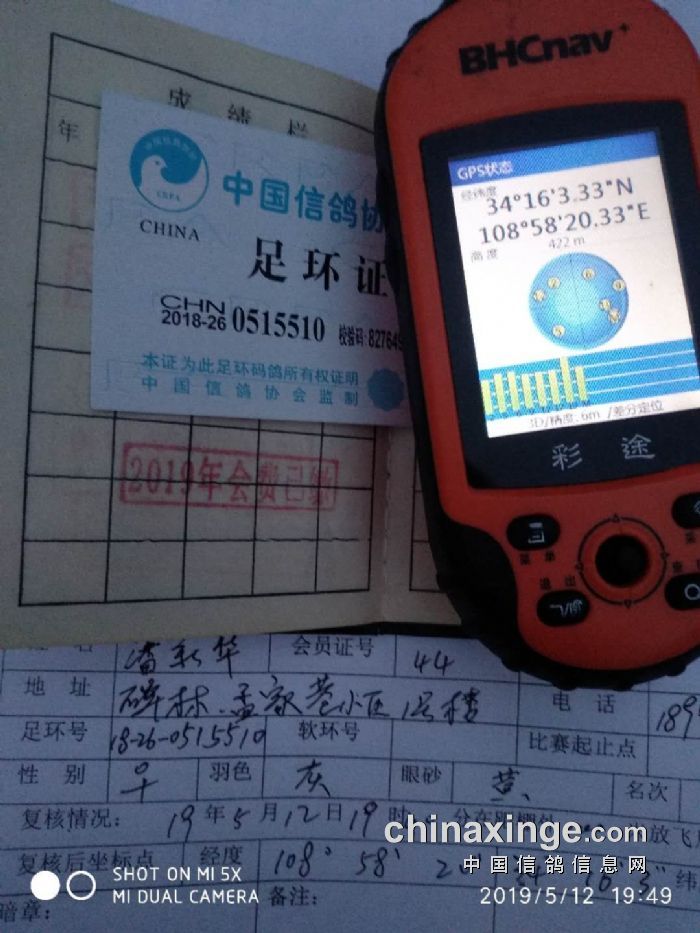 成绩栏
年
CRPA
CHINA
中国信鸽协
足环证
CHN
2018-26 0515510 校验码:827649
本证为此足环码鸽所有权证明
中国信鸽协会监制
2019年会费已缴
BHCnav+
GPS状态
经纬度
34°16'3.33"N
108°58'20.33"E
422 m
高度
3D/精度: 6m /差分定位
彩途
菜单
退出
名 潘新华 会员证号 44
地址 碑林.孟家巷小区1号楼 电话 189
足环号 18-26-0515510 软环号 比赛起止点
性别 早 羽色 灰 眼砂 黄 名次
复核情况: 19年5月12日19时 分在 放飞
复核后坐标点 经度 108° 58' 2 纬
暗章: 备注:
chinaxinge.com
中国信鸽信息网
SHOT ON MI 5X
MI DUAL CAMERA
2019/5/12 19:49